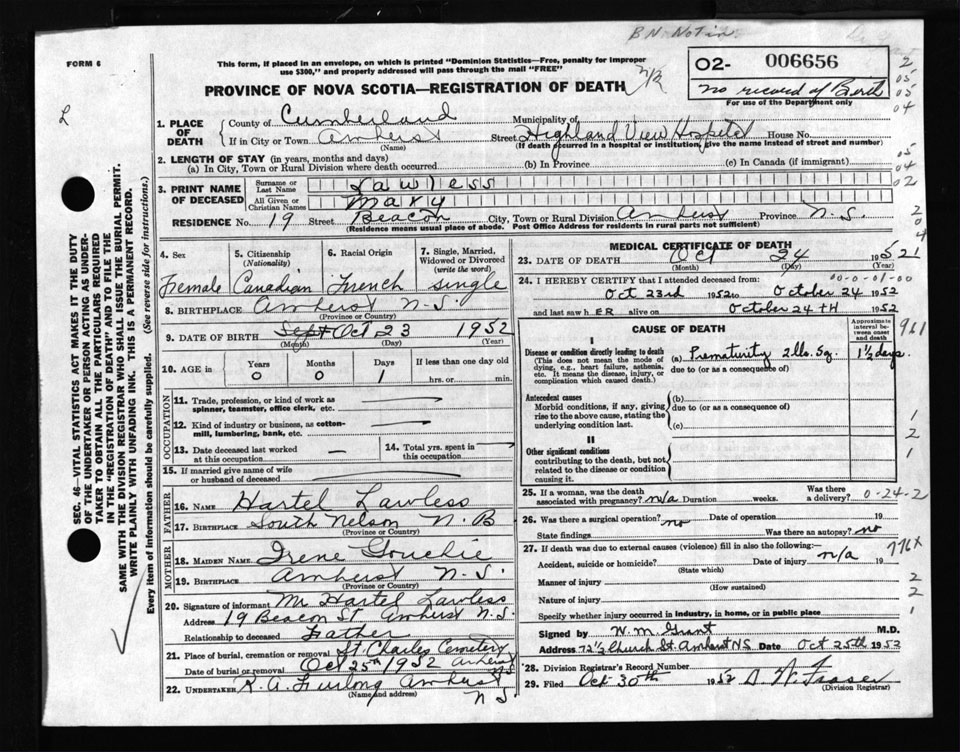 B.N. Not in.
FORM 6
This form, if placed in an envelope, on which is printed "Dominion Statistics—Free, penalty for improper
use $300," and properly addressed will pass through the mail "FREE"
02- 006656
no record of Birth
For use of the Department only
PROVINCE OF NOVA SCOTIA—REGISTRATION OF DEATH
1. PLACE OF DEATH
County of Cumberland Municipality of
If in City or Town Amherst Street Highland View Hospital House No.
(Name) (If death occurred in a hospital or institution, give the name instead of street and number)
2. LENGTH OF STAY (in years, months and days)
(a) In City, Town or Rural Division where death occurred (b) In Province (c) In Canada (if immigrant)
3. PRINT NAME OF DECEASED
Surname or Last Name Lawless
All Given or Christian Names Mary
RESIDENCE No. 19 Street Beacon City, Town or Rural Division Amherst Province N.S.
(Residence means usual place of abode. Post Office Address for residents in rural parts not sufficient)
4. Sex Female
5. Citizenship (Nationality) Canadian
6. Racial Origin French
7. Single, Married, Widowed or Divorced (write the word) single
8. BIRTHPLACE Amherst N.S.
(Province or Country)
9. DATE OF BIRTH Sept Oct 23 1952
(Month) (Day) (Year)
10. AGE in Years 0 Months 0 Days 1 If less than one day old hrs. or min.
OCCUPATION
11. Trade, profession, or kind of work as spinner, teamster, office clerk, etc.
12. Kind of industry or business, as cotton-mill, lumbering, bank, etc.
13. Date deceased last worked at this occupation —
14. Total yrs. spent in this occupation
15. If married give name of wife or husband of deceased
FATHER
16. NAME Hartel Lawless
17. BIRTHPLACE South Nelson N.B
(Province or Country)
MOTHER
18. MAIDEN NAME Irene Gouchie
19. BIRTHPLACE Amherst N.S.
(Province or Country)
20. Signature of informant Mr Hartel Lawless
Address 19 Beacon St Amherst N.S.
Relationship to deceased Father
21. Place of burial, cremation or removal St Charles Cemetery Amherst NS
Date of burial or removal Oct 25th 1952
22. UNDERTAKER R. A. Furlong Amherst N S
(Name and address)
MEDICAL CERTIFICATE OF DEATH
23. DATE OF DEATH Oct 24 1952
(Month) (Day) (Year)
24. I HEREBY CERTIFY that I attended deceased from: 00-0-01-00
Oct 23rd 1952 to October 24 1952
and last saw h ER alive on October 24TH 1952
CAUSE OF DEATH
Approximate interval between onset and death
I
Disease or condition directly leading to death
(This does not mean the mode of dying, e.g., heart failure, asthenia, etc. It means the disease, injury, or complication which caused death.)
(a) Prematurity 2 lbs. 5 oz. 1½ days.
due to (or as a consequence of)
Antecedent causes
Morbid conditions, if any, giving rise to the above cause, stating the underlying condition last.
(b)
due to (or as a consequence of)
(c)
II
Other significant conditions
contributing to the death, but not related to the disease or condition causing it.
25. If a woman, was the death associated with pregnancy? n/a Duration weeks. Was there a delivery? 0-24-2
26. Was there a surgical operation? no Date of operation 19
State findings Was there an autopsy? no
27. If death was due to external causes (violence) fill in also the following:— n/a
Accident, suicide or homicide? Date of injury 19
(State which)
Manner of injury
(How sustained)
Nature of injury
Specify whether injury occurred in industry, in home, or in public place
Signed by W. M. Grant M.D.
Address 72½ Church St. Amherst NS Date Oct 25th 1952
28. Division Registrar's Record Number
29. Filed Oct 30th 1952
(Division Registrar)
961
776x
SEC. 46—VITAL STATISTICS ACT MAKES IT THE DUTY
OF THE UNDERTAKER OR PERSON ACTING AS UNDER-
TAKER TO OBTAIN ALL THE PARTICULARS REQUIRED
IN THE "REGISTRATION OF DEATH" AND TO FILE THE
SAME WITH THE DIVISION REGISTRAR WHO SHALL ISSUE THE BURIAL PERMIT.
WRITE PLAINLY WITH UNFADING INK. THIS IS A PERMANENT RECORD.
Every item of information should be carefully supplied. (See reverse side for instructions.)